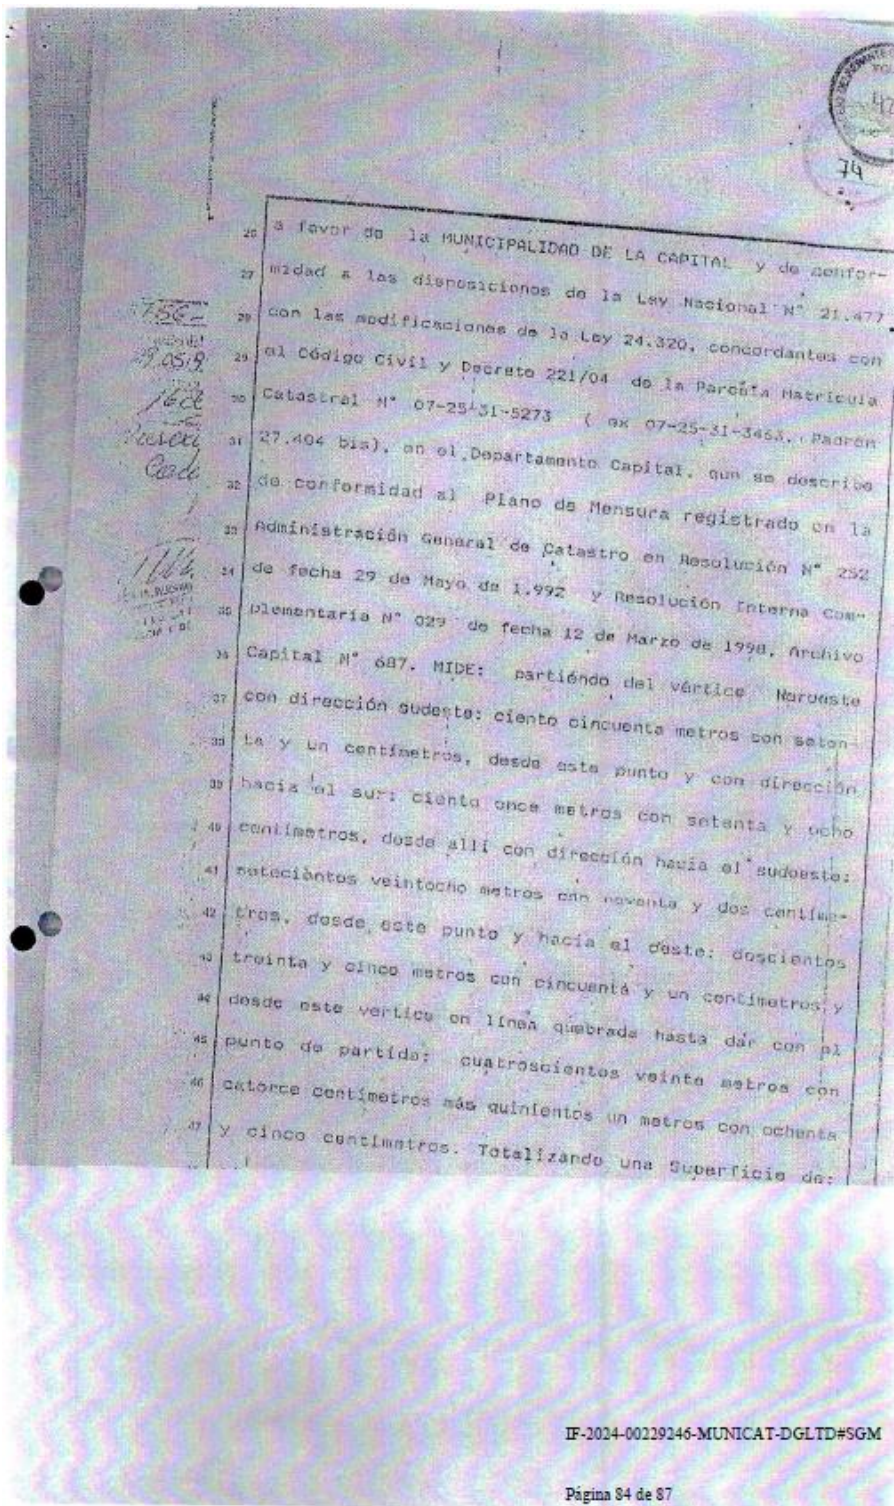 74
26 a favor de la MUNICIPALIDAD DE LA CAPITAL y de confor-
27 midad a las disposiciones de la Ley Nacional N° 21.477
28 con las modificaciones de la Ley 24.320, concordantes con
29 el Código Civil y Decreto 221/04 de la Parcela Matrícula
30 Catastral N° 07-25-31-5273 ( ex 07-25-31-3463, Padrón
31 27.404 bis), en el Departamento Capital, que se describe
32 de conformidad al Plano de Mensura registrado en la
33 Administración General de Catastro en Resolución N° 252
34 de fecha 29 de Mayo de 1.992 y Resolución Interna Com-
35 plementaria N° 029 de fecha 12 de Marzo de 1998, Archivo
36 Capital N° 687. MIDE: partiéndo del vértice Noroeste
37 con dirección sudeste: ciento cincuenta metros con seten-
38 ta y un centímetros, desde este punto y con dirección
39 hacia el sur: ciento once metros con setenta y ocho
40 centímetros, desde allí con dirección hacia el sudoeste:
41 seteciéntos veintocho metros con noventa y dos centíme-
42 tros, desde este punto y hacia el oeste: doscientos
43 treinta y cinco metros con cincuenta y un centímetros y
44 desde este vertice en línea quebrada hasta dar con el
45 punto de partida: cuatroscientos veinte metros con
46 catorce centímetros más quinientos un metros con ochenta
47 y cinco centímetros. Totalizando una Superficie de:
IF-2024-00229246-MUNICAT-DGLTD#SGM
Página 84 de 87